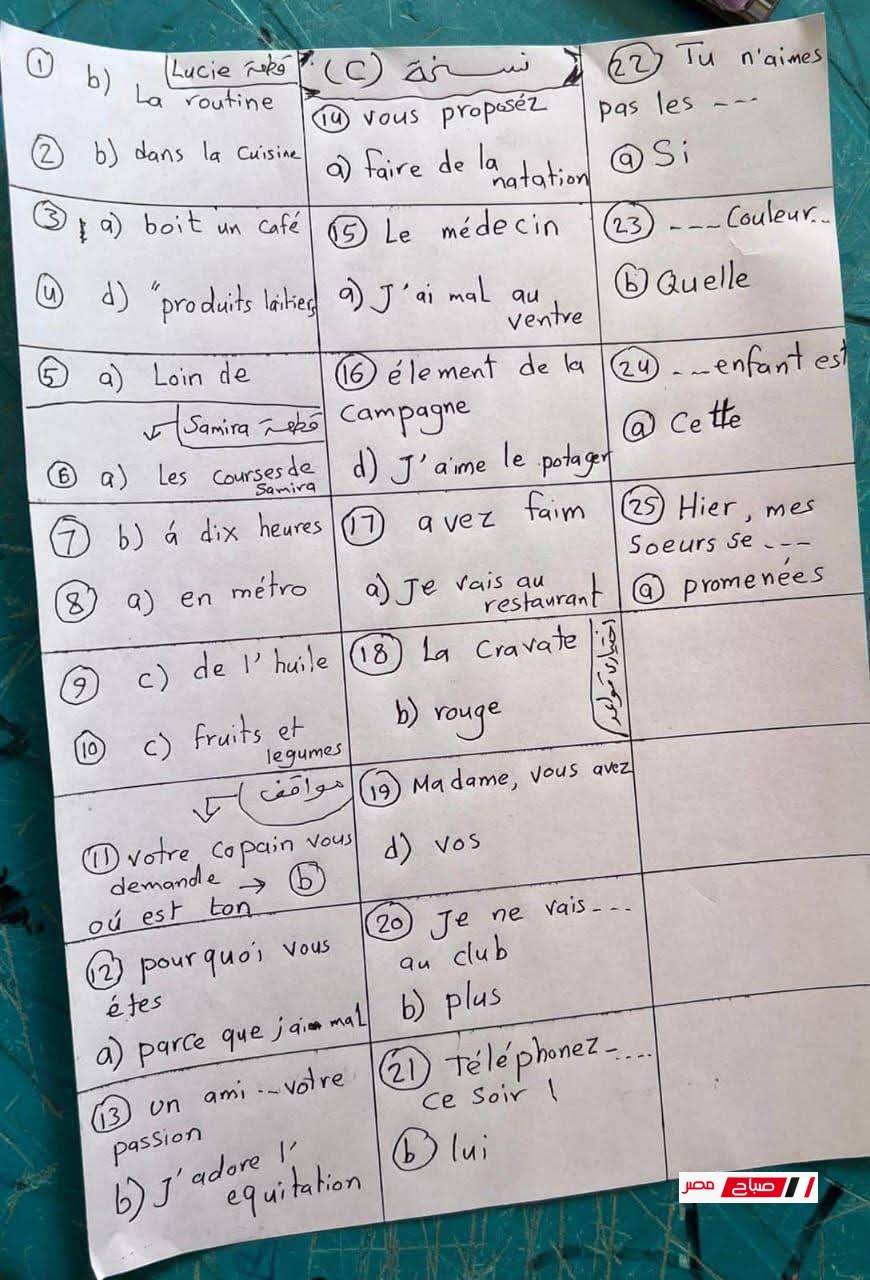 ① b) قطعة Lucie
La routine
② b) dans la cuisine
③ a) boit un café
④ d) "produits laitiers
⑤ a) Loin de
قطعة Samira
⑥ a) Les courses de
Samira
⑦ b) á dix heures
⑧ a) en métro
⑨ c) de l'huile
⑩ c) fruits et
legumes
مواقف
⑪ votre copain vous
demande → ⓑ
oú est ton
⑫ pourquoi vous
étes
a) parce que j'ai mal
⑬ un ami ... votre
passion
b) J'adore l'
equitation
نسخة (C)
⑭ vous proposéz
a) faire de la
natation
⑮ Le médecin
a) J'ai mal au
ventre
⑯ élement de la
campagne
d) J'aime le potager
⑰ avez faim
a) Je vais au
restaurant
⑱ La cravate
b) rouge
اختيارات قواعد
⑲ Madame, vous avez
d) vos
⑳ Je ne vais ---
au club
b) plus
㉑ Téléphonez -....
ce soir !
ⓑ lui
㉒ Tu n'aimes
pas les ---
ⓐ Si
㉓ --- Couleur..
ⓑ Quelle
㉔ --- enfant est
ⓐ Cette
㉕ Hier, mes
soeurs se ---
ⓐ promenées
صباح مصر